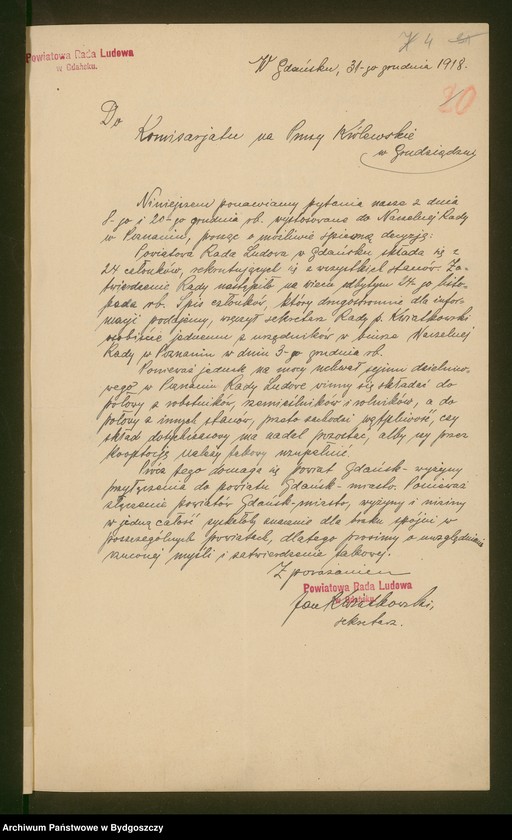 Powiatowa Rada Ludowa
w Gdańsku.
4
W Gdańsku, 31-go grudnia 1918.
20
Do
Komisarjatu na Prusy Królewskie
w Grudziądzu
Niniejszem ponawiamy pytania nasze z dnia
8-go i 20-go grudnia rb. wystosowane do Naczelnej Rady
w Poznaniu, prosząc o możliwie śpieszną decyzję:
Powiatowa Rada Ludowa w Gdańsku składa się z
24 członków, rekrutujących się z wszystkich stanów. Za-
twierdzenie Rady nastąpiło na wiecu odbytym 24-go listo-
pada rb. Spis członków, który drugostronnie dla infor-
macji podajemy, wręczył sekretarz Rady p. Kwiatkowski
osobiście jednemu z urzędników w biurze Naczelnej
Rady w Poznaniu w dniu 3-go grudnia rb.
Ponieważ jednak na mocy uchwał sejmu dzielnico-
wego w Poznaniu Rady Ludowe winny się składać do
połowy z robotników, rzemieślników i rolników, a do
połowy z innych stanów, przeto zachodzi wątpliwość, czy
skład dotychczasowy ma nadal pozostać, albo czy przez
kooptację należy takowy uzupełnić.
Prócz tego domaga się powiat Gdańsk-wyżyny
przyłączenia do powiatu Gdańsk-miasto. Ponieważ
złączenie powiatów Gdańsk-miasto, wyżyny i niziny
w jedną całość byłoby dla braku spójni w
poszczególnych powiatach, dlatego prosimy o uwzględnienie
rzuconej myśli i zatwierdzenie takowej.
Z poważaniem
Powiatowa Rada Ludowa
w Gdańsku.
Jan Kwiatkowski,
sekretarz.
Archiwum Państwowe w Bydgoszczy